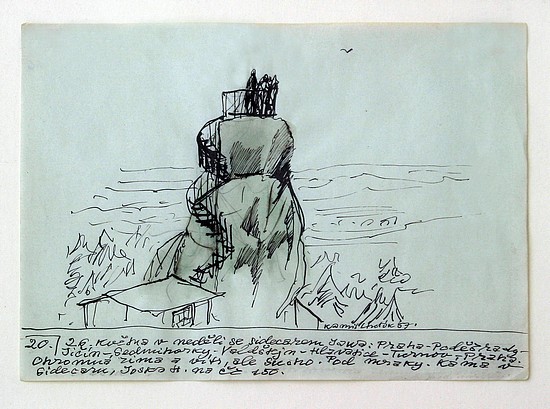 Kamil Lhoták 67.
20. 26. Května v neděli se sidecarem Jawa: Praha-Poděbrady-
Jičín-Sedmihorky-Valdštejn-Hlavatice-Turnov-Praha.
Ohromná zima a vítr, ale sucho. Pod mraky. Kama v
sidecaru, Joska H. na čz 150.